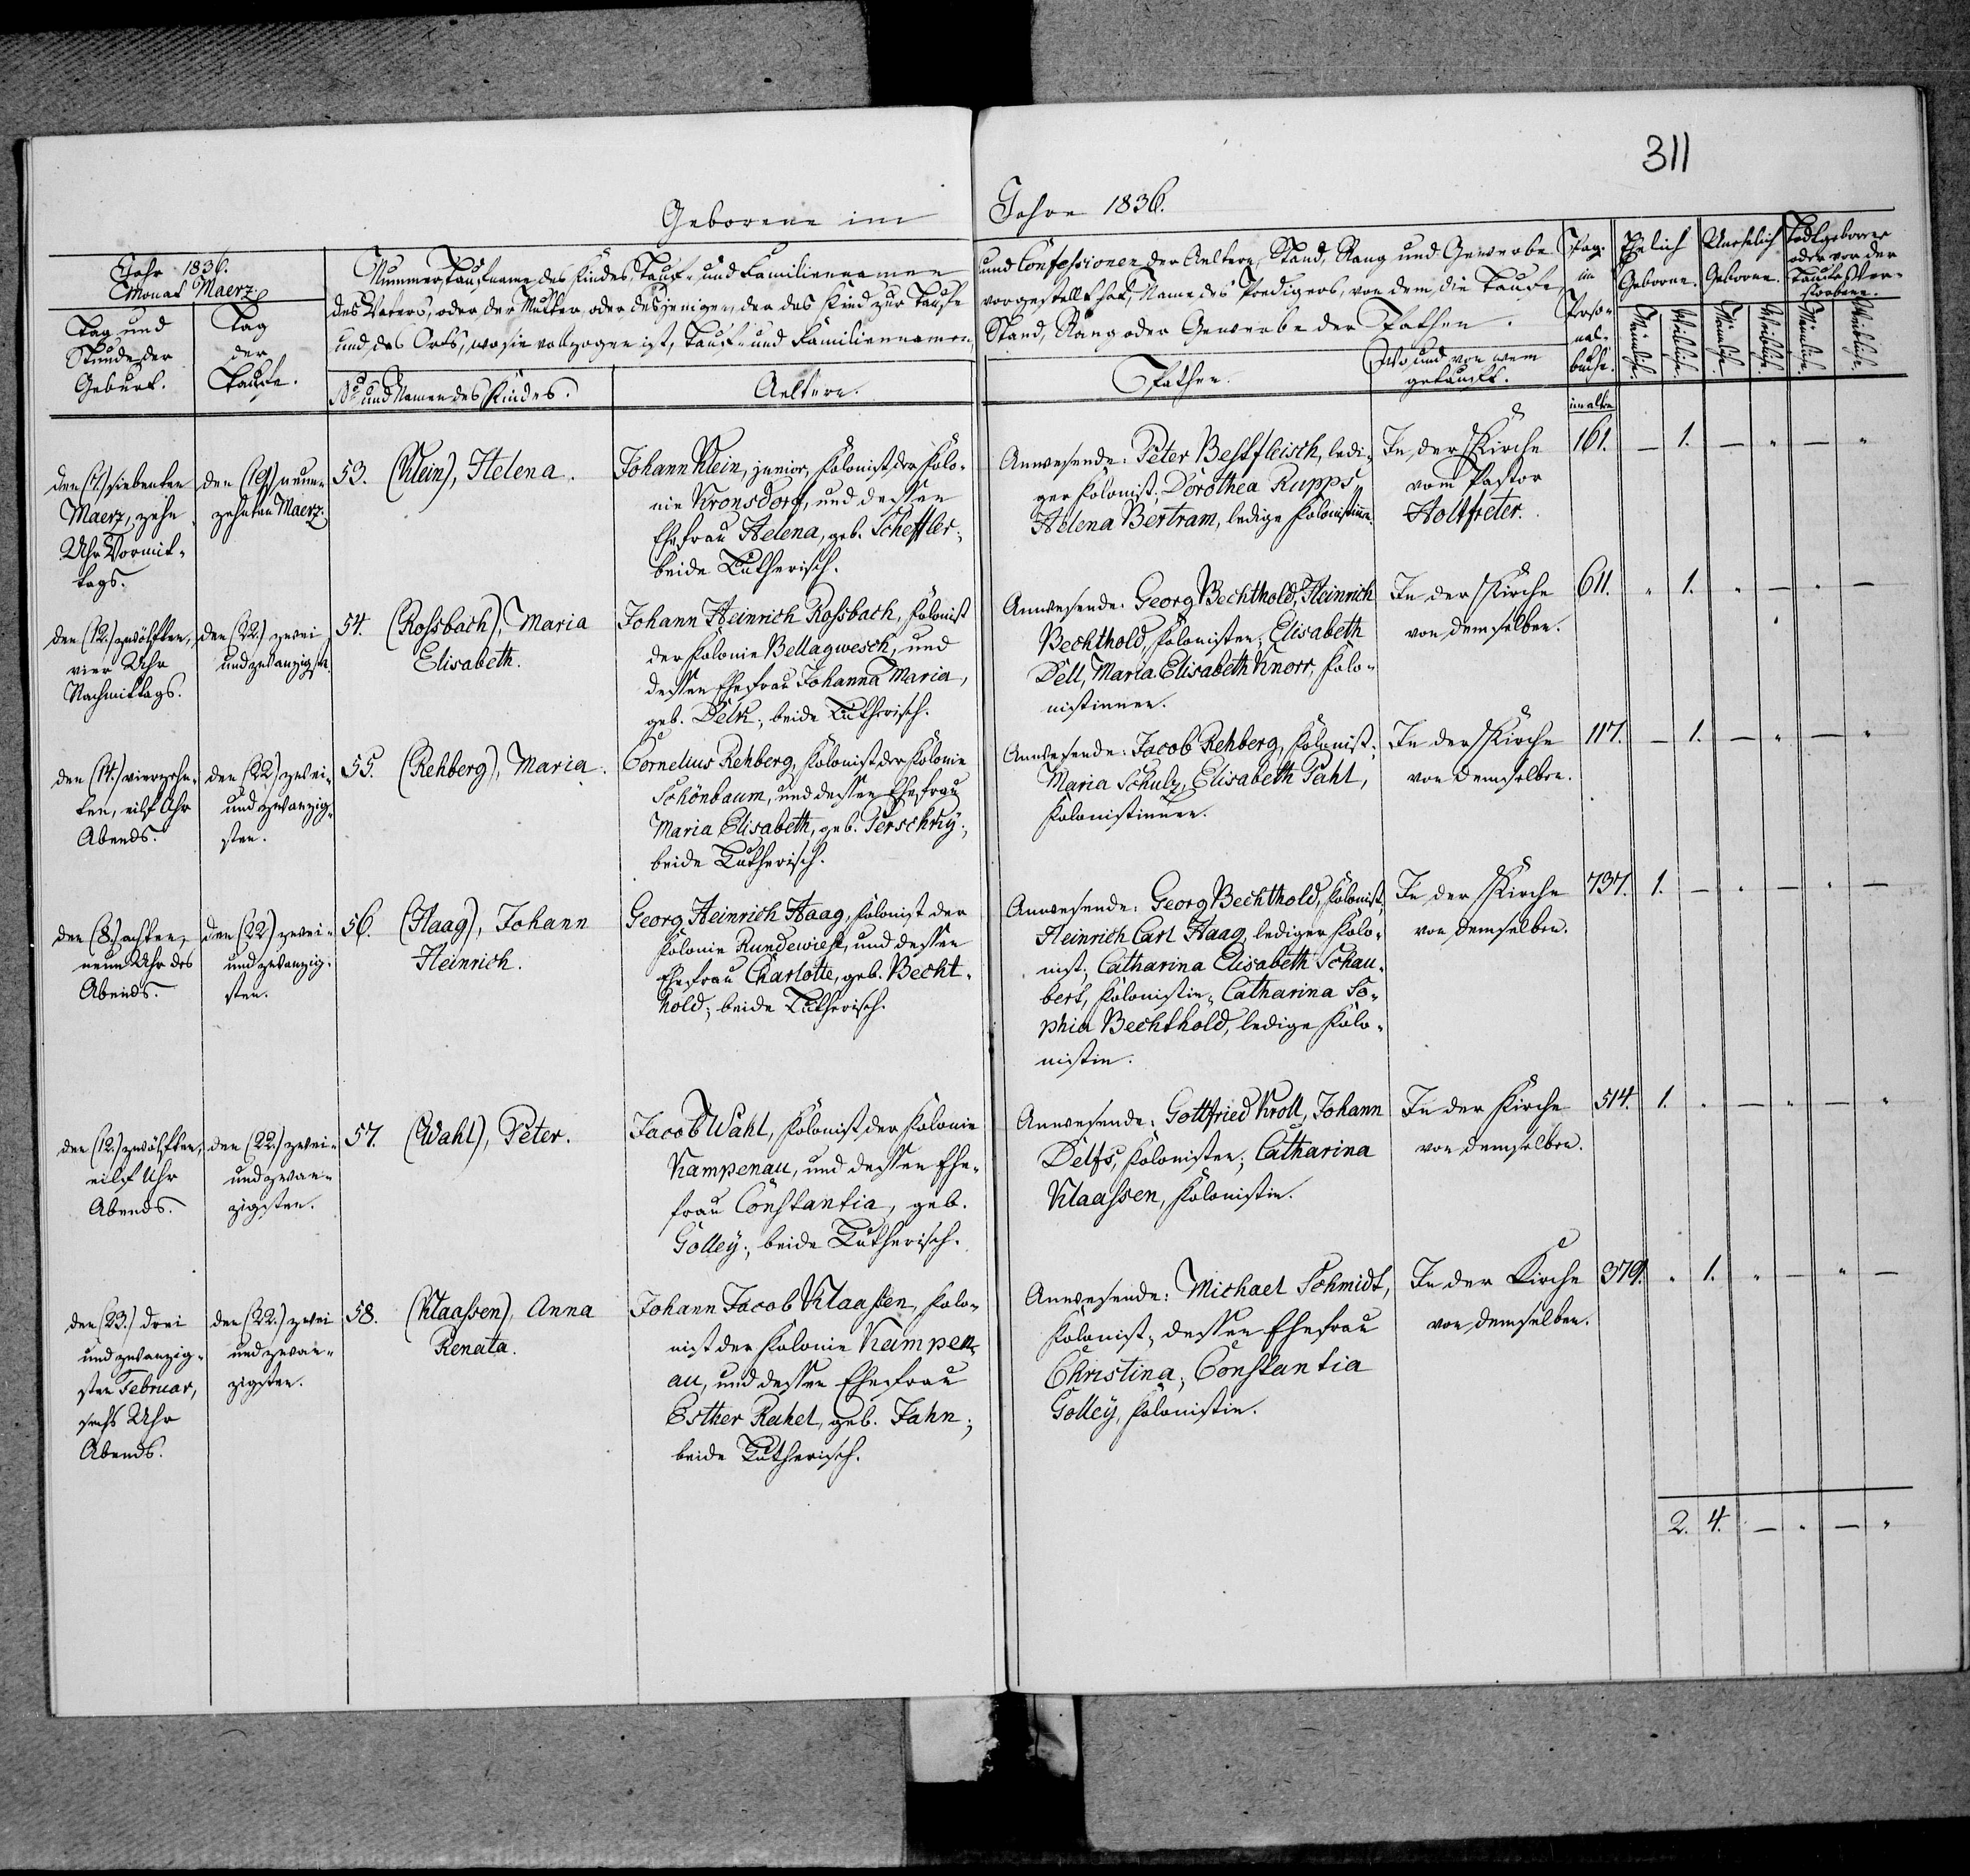 311
Geborene im Jahre 1836.
Jahr 1836.
Monat Maerz.
Tag und
Stunde der
Geburt.
Tag
der
Taufe.
Nummer, Taufname des Kindes, Tauf- und Familiennamen
des Vaters, oder der Mutter, oder desjenigen, der das Kind zur Taufe
und des Orts, wo sie vollzogen ist, Tauf- und Familiennamen,
No und Namen des Kindes.
Aeltern.
und Confessionen der Aeltern, Stand, Rang und Gewerbe
vorgestellt hat, Name des Predigers, von dem die Taufe,
Stand, Rang oder Gewerbe der Pathen.
Pathen.
Wo und von wem
getauft.
Pag.
im
Perso-
nal-
buche.
im alten
Ehelich
Geborne.
Unehelich
Geborne.
Todtgeborne
oder vor der
Taufe Ver-
storbene.
Männlich.
Weiblich.
Männlich.
Weiblich.
Männlich.
Weiblich.
den (7.) siebenten
Maerz, zehn
Uhr Vormit-
tags.
den (19.) neun-
zehnten Maerz.
53. (Klein), Helena.
Johann Klein, junior, Kolonist der Kolo-
nie Kronsdorf, und dessen
Ehefrau Helena, geb. Scheffler;
beide Lutherisch.
Anwesende: Peter Bestfleisch, ledi-
ger Kolonist; Dorothea Rupps,
Helena Bertram, ledige Kolonistinn.
In der Kirche
vom Pastor
Holtfreter.
161. — 1. — " — "
den (12.) zwölften,
vier Uhr
Nachmittags.
den (22.) zwei
und zwanzigsten.
54. (Rossbach), Maria
Elisabeth.
Johann Heinrich Rossbach, Kolonist
der Kolonie Bellagwesch, und
dessen Ehefrau Johanna Maria,
geb. Delk; beide Lutherisch.
Anwesende: Georg Bechthold, Heinrich
Bechthold, Kolonisten; Elisabeth
Dell, Maria Elisabeth Knorr, Kolo-
nistinnen.
In der Kirche
von demselben.
611. " 1. " — " —
den (14.) vierzehn-
ten, eilf Uhr
Abends.
den (22.) zwei-
und zwanzig-
sten.
55. (Rehberg), Maria.
Cornelius Rehberg, Kolonist der Kolonie
Schönbaum, und dessen Ehefrau
Maria Elisabeth, geb. Perschky;
beide Lutherisch.
Anwesende: Jacob Rehberg, Kolonist;
Maria Schulz, Elisabeth Pahl,
Kolonistinnen.
In der Kirche
von demselben.
117. — 1. — " — "
den (8.) achten,
neun Uhr des
Abends.
den (22.) zwei-
und zwanzig-
sten.
56. (Haag), Johann
Heinrich.
Georg Heinrich Haag, Kolonist der
Kolonie Rundewiese, und dessen
Ehefrau Charlotte, geb. Becht-
hold; beide Lutherisch.
Anwesende: Georg Bechthold, Kolonist,
Heinrich Carl Haag, lediger Kolo-
nist; Catharina Elisabeth Schau-
bert, Kolonistin; Catharina So-
phia Bechthold, ledige Kolo-
nistin.
In der Kirche
von demselben.
737. 1. — " — " —
den (12.) zwölften,
eilf Uhr
Abends.
den (22.) zwei-
und zwan-
zigsten.
57. (Wahl), Peter.
Jacob Wahl, Kolonist der Kolonie
Kampenau, und dessen Ehe-
frau Constantia, geb.
Golley; beide Lutherisch.
Anwesende: Gottfried Kroll, Johann
Delfs, Kolonisten; Catharina
Klaassen, Kolonistin.
In der Kirche
von demselben.
514. 1. " — " — "
den (23.) drei
und zwanzig-
sten Februar,
sechs Uhr
Abends.
den (22.) zwei
und zwan-
zigsten.
58. (Klaassen), Anna
Renata.
Johann Jacob Klaassen, Kolo-
nist der Kolonie Kampen-
au, und dessen Ehefrau
Esther Rahel, geb. Jahn;
beide Lutherisch.
Anwesende: Michael Schmidt,
Kolonist, dessen Ehefrau
Christina; Constantia
Golley, Kolonistin.
In der Kirche
von demselben.
379. " 1. " — " —
2. 4. — " — "